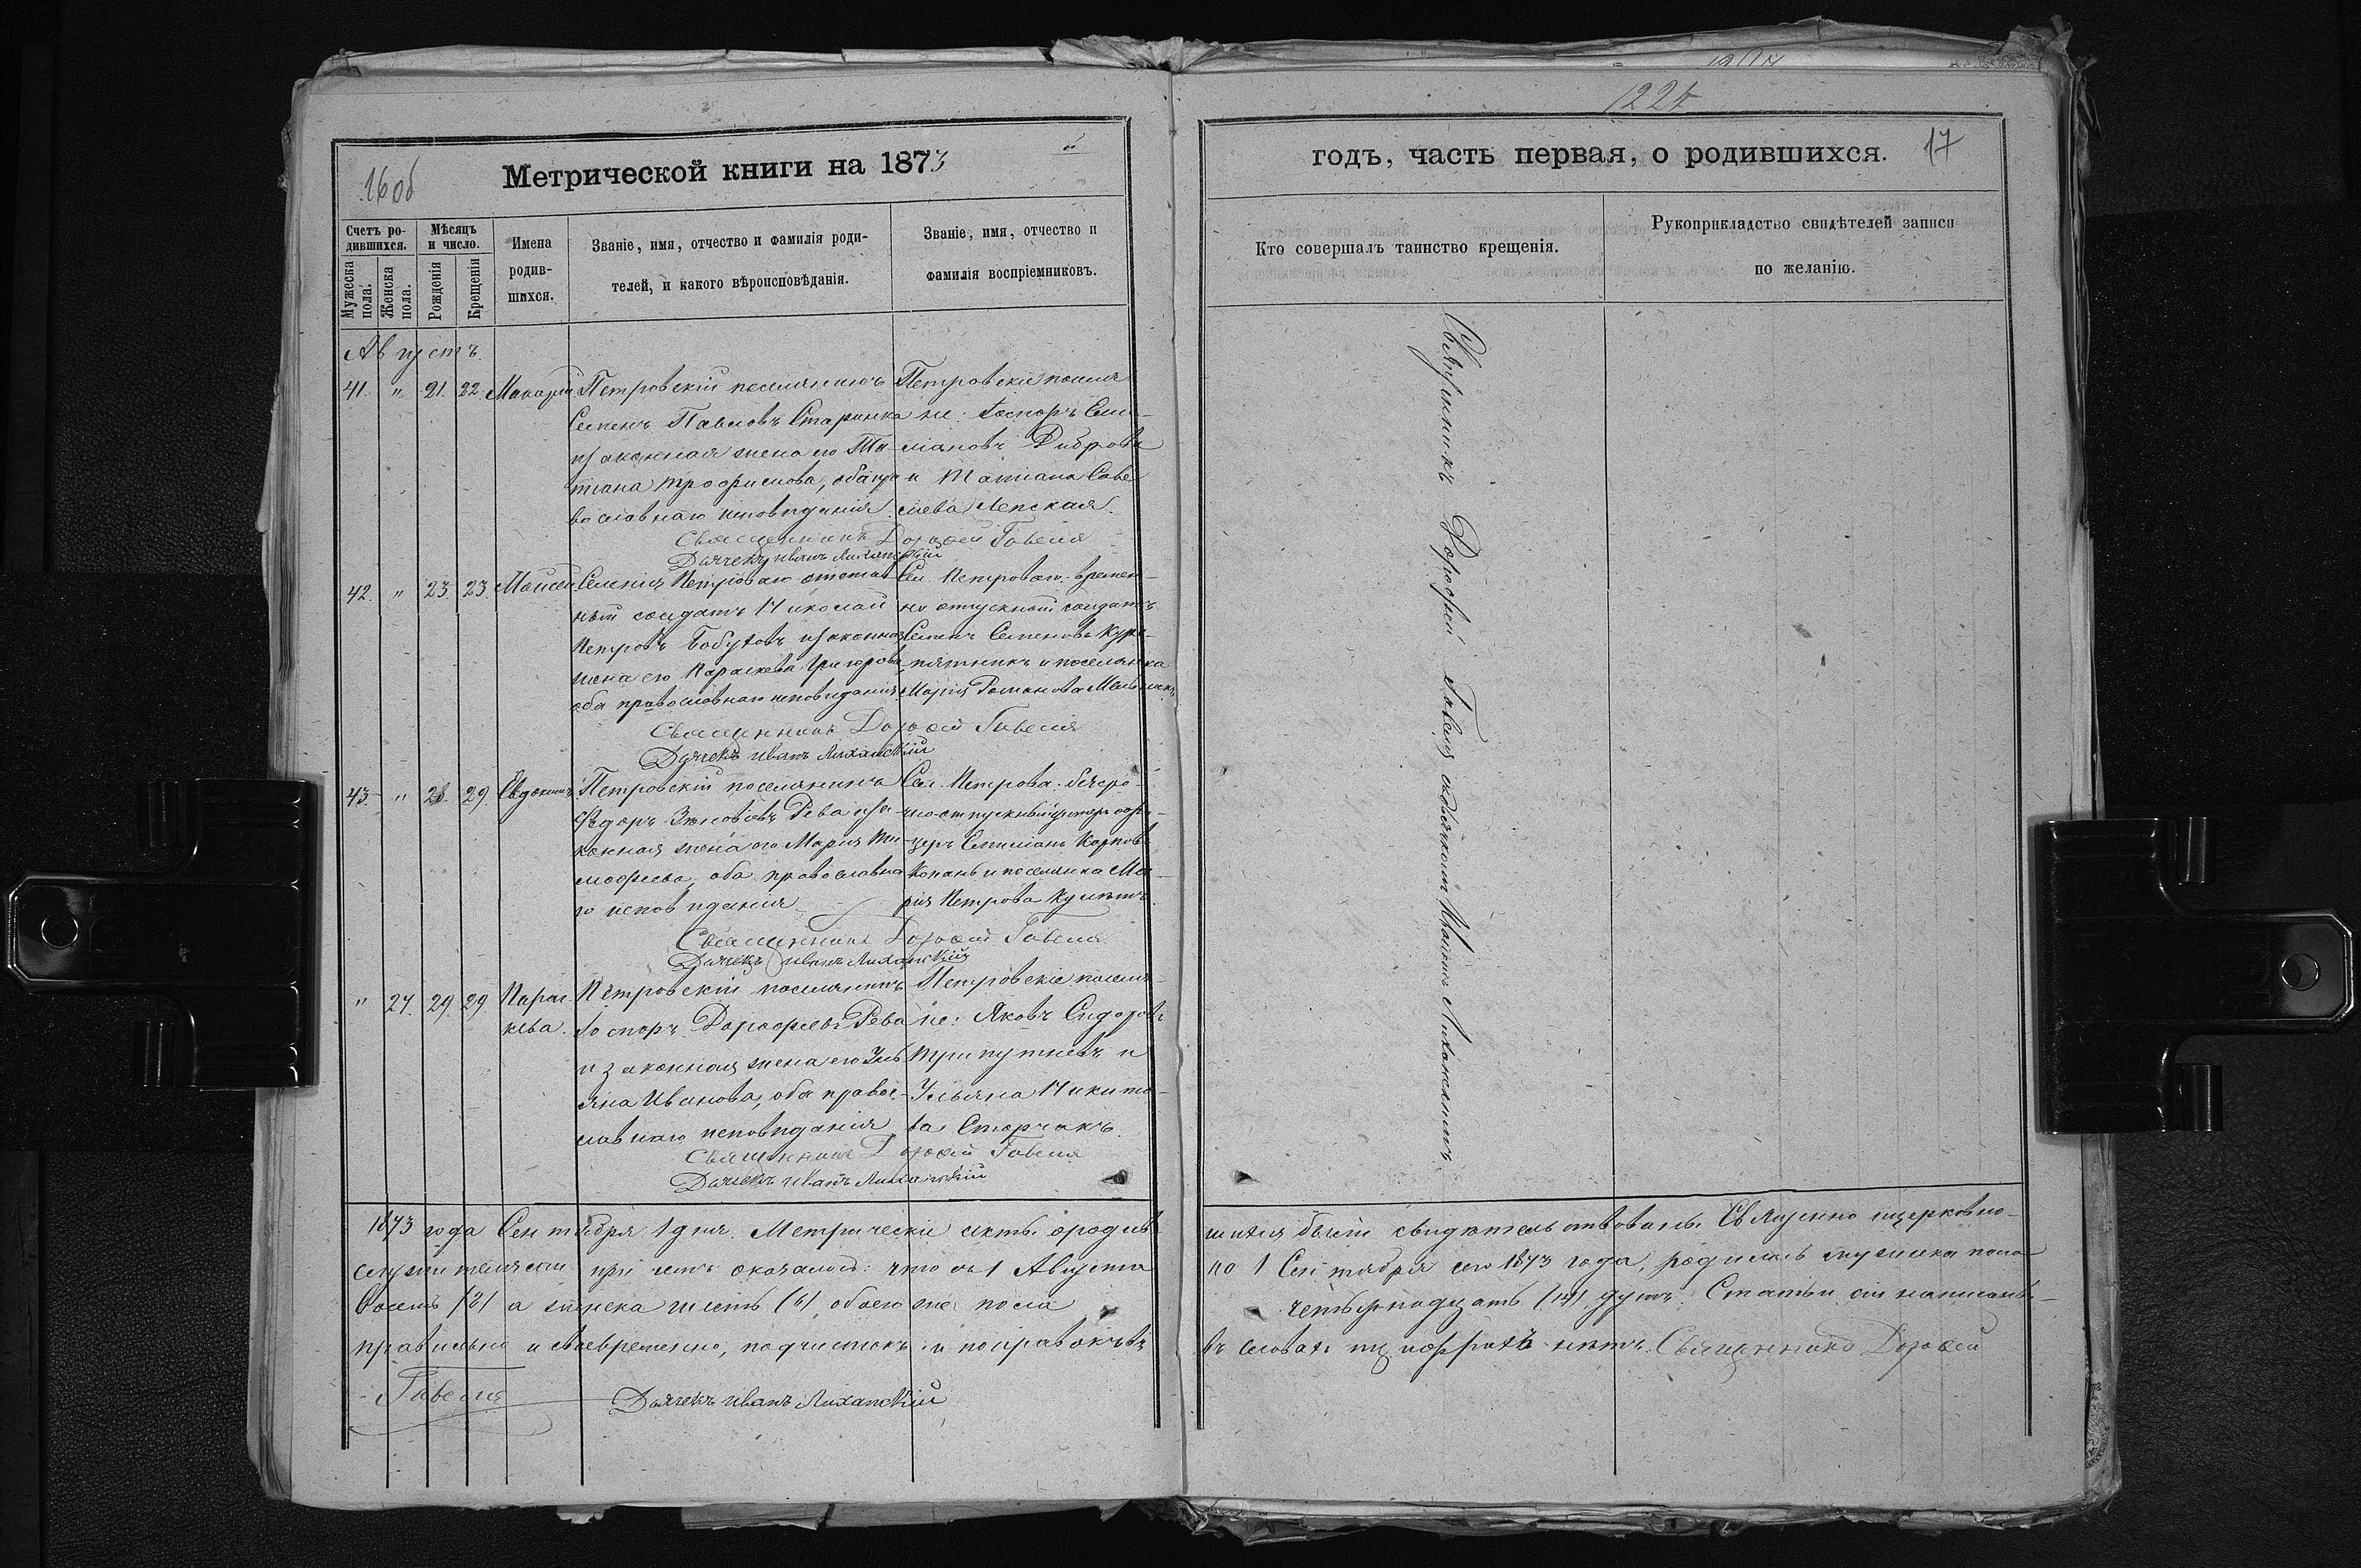 16об
Метрической книги на 1873
Счетъ родившихся.
Мужеска пола.
Женска пола.
Мѣсяцъ и число.
Рожденія
Крещенія
Имена родившихся.
Званіе, имя, отчество и фамилія родителей, и какого вѣроисповѣданія.
Званіе, имя, отчество и фамилія воспріемниковъ.
Августъ.
41. " 21. 22 Макарій
Петровскій поселянинъ
Семенъ Павловъ Старинка
и законная жена его Та-
тіана Трофимова, оба пра
вославнаго исповѣданія.
Петровскіе поселя
не:
Диброва
и Татіана Саве
льева Лепская.
Священникъ Дороѳей Гавеля
Дьячекъ Иванъ Лиханскій
42. " 23. 23. Моисей
Селенія Петроваго отстав
ный солдатъ Николай
Петровъ Бобуховъ и законная
жена его Параскева Григорова
оба православнаго исповѣданія
Сел. Петроваго. времен-
но отпускной солдатъ
Семенъ Семеновъ Кура-
пятникъ и поселянка
Марія Романова Мельникъ
Священникъ Дороѳей Гавеля
Дьячекъ Иванъ Лиханскій
43. " 28. 29. Евдокимъ
Петровскій поселянинъ
Ѳедоръ Зиновіевъ Рева и за-
конная жена его Марія Ти-
мофеева, оба православна
го исповѣданія
Сел. Петрова: безсро-
чноотпускный унтеръ офи-
церъ Емиліанъ Карповъ
Копань и поселянка Ма-
рія Петрова
Священникъ Дороѳей Гавеля
Дьячекъ Иванъ Лиханскій
" 24. 29. 29. Парас
кева.
Петровскій поселянинъ
Дорофеевъ Рева
и законная жена его Уль
яна Иванова, оба правос-
лавнаго исповѣданія
Петровскіе поселя-
не: Яковъ Сидоровъ
Трипутневъ и
Ульяна Никито-
ва Сторчакъ.
Священникъ Дороѳей Гавеля
Дьячекъ Иванъ Лиханскій
1873 года Сентября 1 дня. Метрически акты о родив
служителями при чемъ оказалось: что съ 1 Августа
восемь (8) а женска шесть (6), обоего же пола
правильно и своевременно, подчистокъ и поправокъ
Гавеля
Дьячекъ Иванъ Лиханскій
1224
годъ, часть первая, о родившихся.
17
Кто совершалъ таинство крещенія.
Рукоприкладство свидѣтелей записи по желанію.
Священникъ Дорофей Гавеля съ дьячкомъ Иваномъ Лиханскимъ
шихся были свидѣтельствованы Священно и церковно-
по 1 Сентября сего 1873 года, родилось мужска пола
четырнадцать (14) душъ. Статьи сіи написаны
въ словахъ и цифрахъ нѣтъ. Священникъ Дороѳей